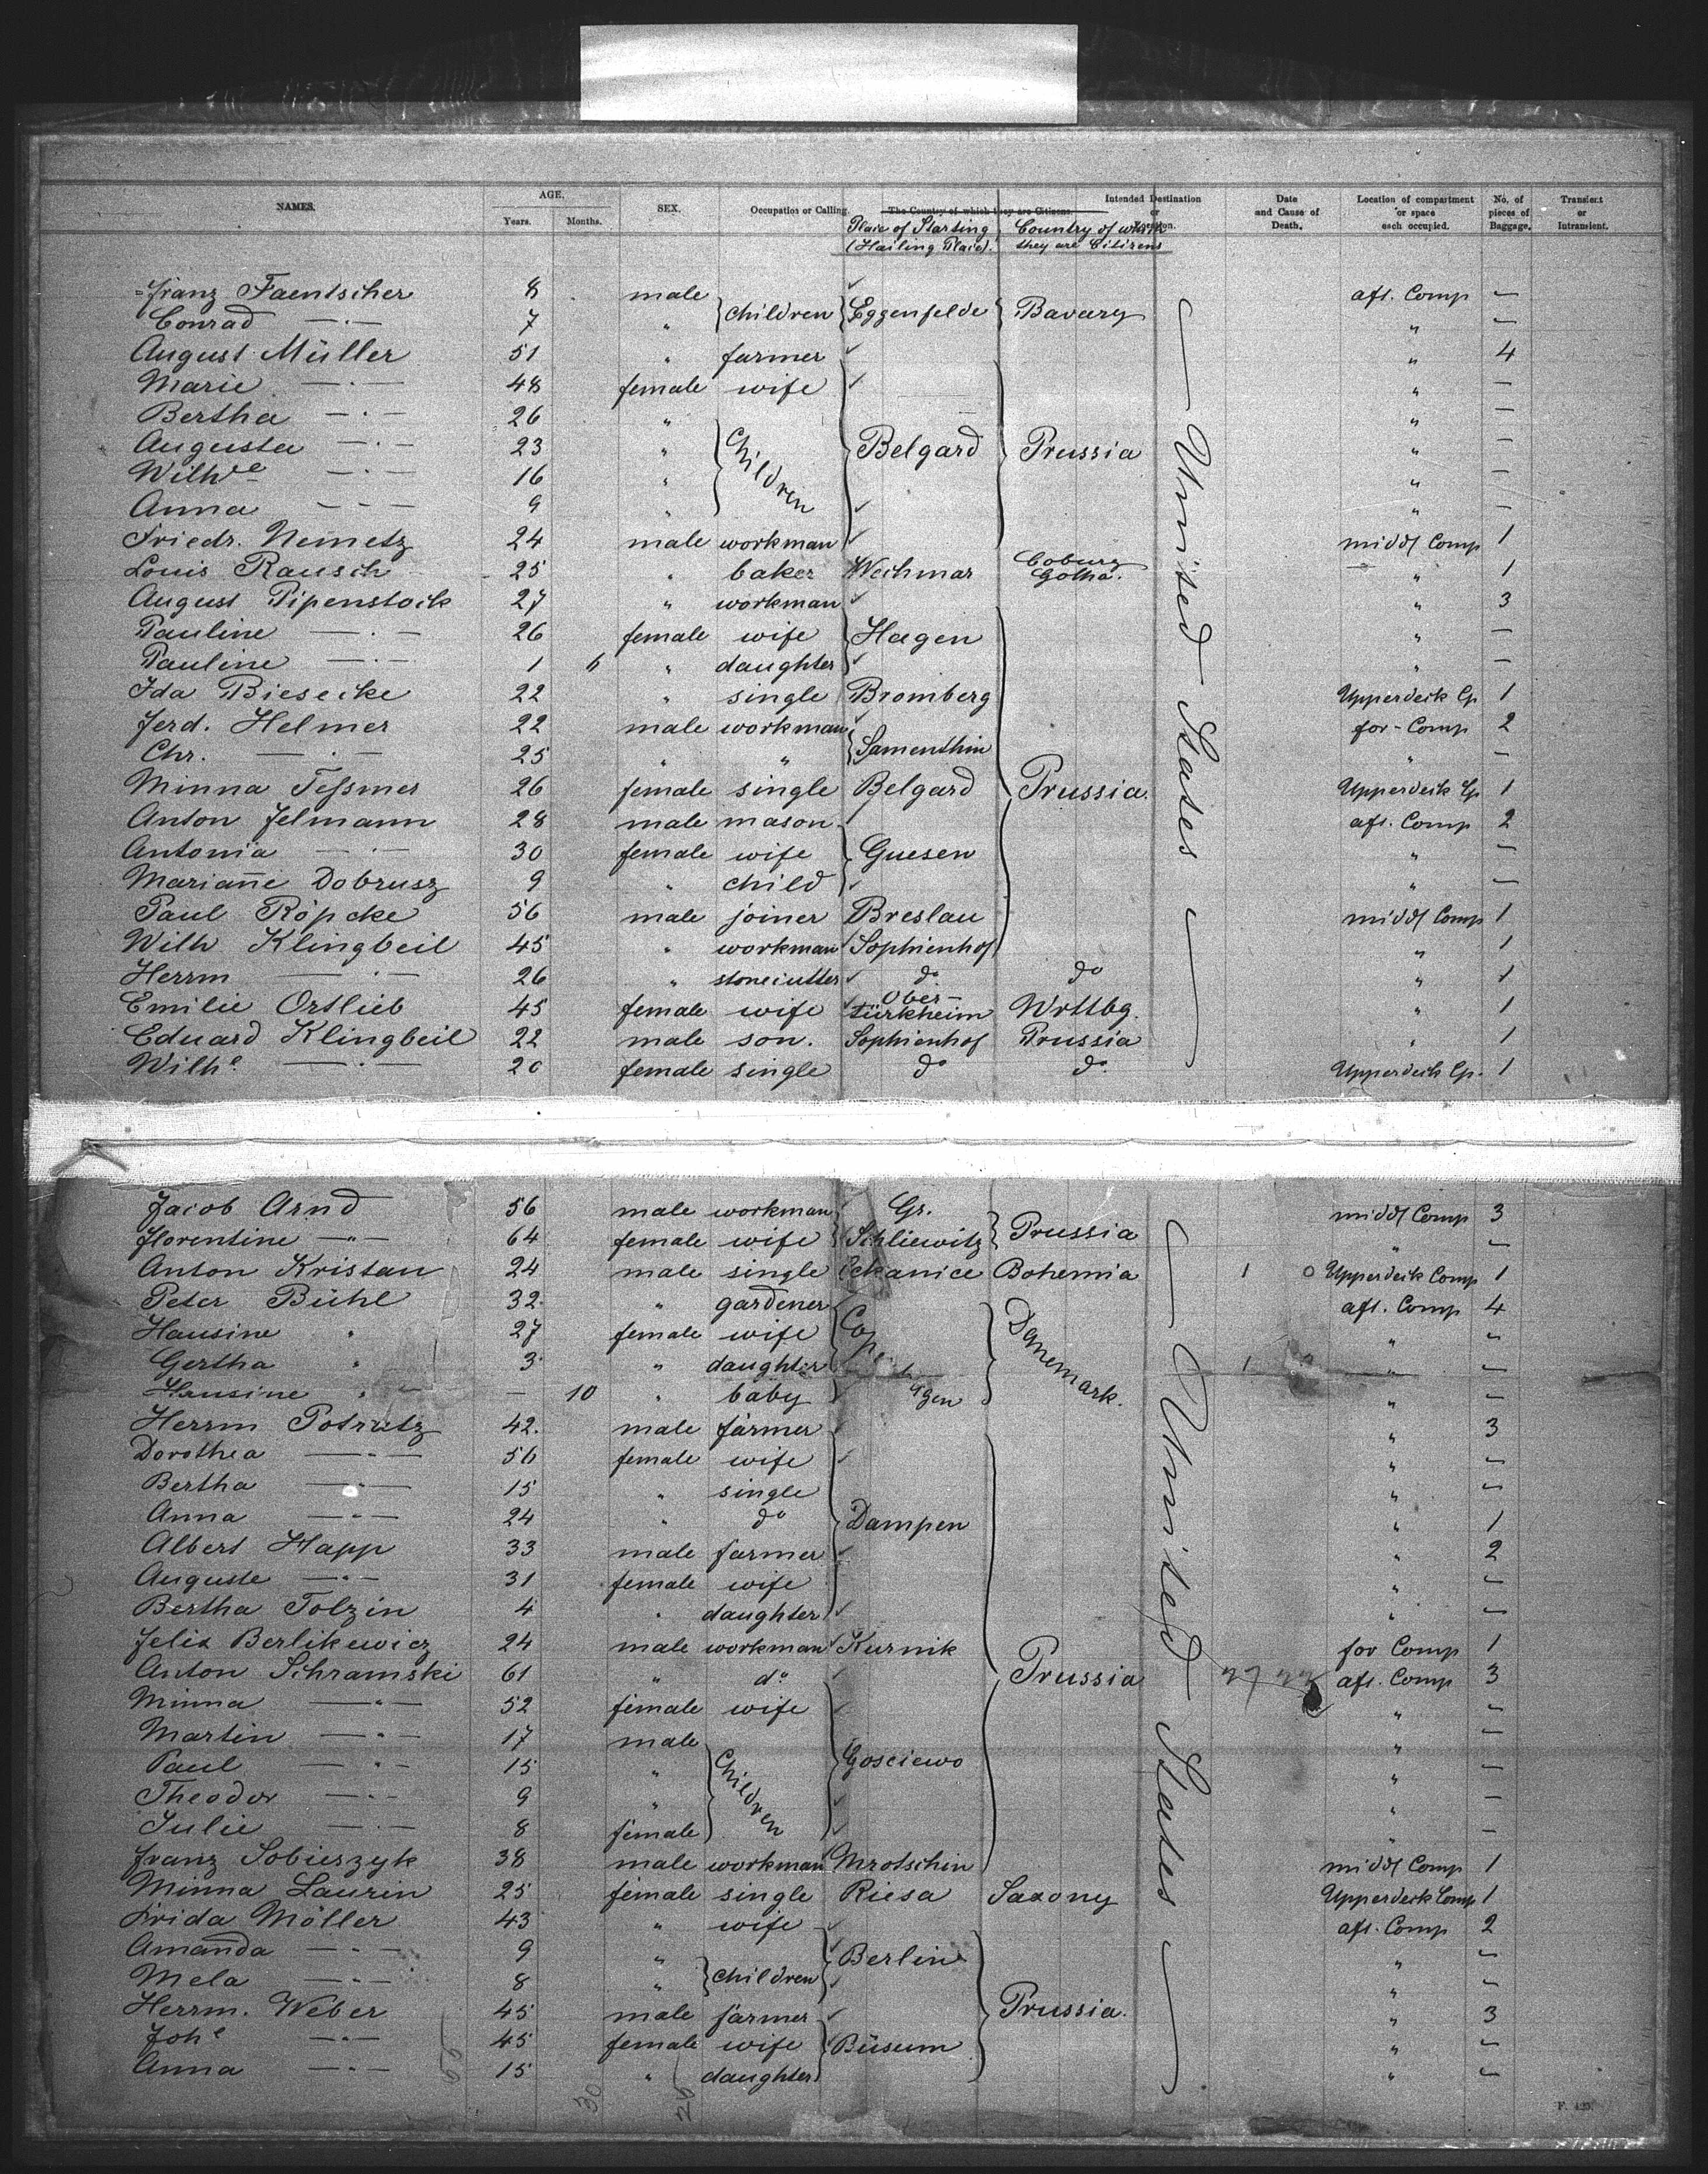 NAMES. AGE. SEX. Occupation or Calling. The Country of which they are Citizens. Intended Destination or Location. Date and Cause of Death. Location of compartment or space each occupied. No. of pieces of Baggage. Transient or Intransient.
Years. Months.
Place of Starting (Hailing Place). Country of which they are Citizens
Franz Faentscher 8 male children Eggenfelde Bavary aft. Comp —
Conrad — " — 7 " " —
August Müller 51 " farmer " 4
Marie — " — 48 female wife " —
Bertha — " — 26 " " —
Augusta — " — 23 " Children Belgard Prussia " —
Wilhe — " — 16 " " —
Anna — " — 9 " " —
Friedr. Nemetz 24 male workman middl Comp 1
Louis Rausch 25 " baker Wechmar Coburg Gotha. " 1
August Pipenstock 27 " workman " 3
Pauline — " — 26 female wife Hagen " —
Pauline — " — 1 6 " daughter " —
Ida Biesecke 22 " single Bromberg Upperdeck Cp 1
Ferd. Helmer 22 male workman for-Comp 2
Chr. — " — 25 " " Samenthin " —
Minna Teßmer 26 female single Belgard Prussia. Upperdeck Cp 1
Anton Felmann 28 male mason aft. Comp 2
Antonia — " — 30 female wife Guesen " —
Marian̄e Dobrusz 9 " child " —
Paul Röpcke 56 male joiner Breslau middl Comp 1
Wilh Klingbeil 45 " workman Sophienhof " 1
Herrm — " — 26 " stonecutter do do " 1
Emilie Ortlieb 45 female wife Ober-türkheim Wrttbg. " 1
Eduard Klingbeil 22 male son. Sophienhof Prussia " 1
Wilhe — " — 20 female single do do Upperdeck Cp. 1
United States
Jacob Arnd 56 male workman Gr. middl Comp 3
Florentine — " — 64 female wife Schliewitz Prussia " —
Anton Kristan 24 male single Bohemia 1 0 Upperdeck Comp 1
Peter Bühl 32 " gardener aft. Comp 4
Hansine " 27 female wife Danemark. " —
Gertha " 3 " daughter 1 " —
Hansine " — 10 " baby " —
Herrm Potratz 42. male farmer " 3
Dorothea — " — 56 female wife " —
Bertha — " — 15 " single " —
Anna — " — 24 " do Dampen " 1
Albert Happ 33 male farmer " 2
Auguste — " — 31 female wife " —
Bertha Tolzin 4 " daughter " —
Felix Berlikewicz 24 male workman Kurnik for Comp 1
Anton Schramski 61 " do Prussia aft. Comp 3
Minna — " — 52 female wife " —
Martin — " — 17 male " —
Paul — " — 15 " Children Gosciewo " —
Theodor — " — 9 " " —
Julie — " — 8 female " —
Franz Sobieszyk 38 male workman Mrotschin middl Comp 1
Minna Laurin 25 female single Riesa Saxony Upperdeck Comp 1
Frida Möller 43 " wife aft. Comp 2
Amanda — " — 9 " Berlin " —
Mela — " — 8 " children " —
Herrm. Weber 45 male farmer Prussia. " 3
Johe — " — 45 female wife Büsum " —
Anna — " — 15 " daughter " —
United States
30